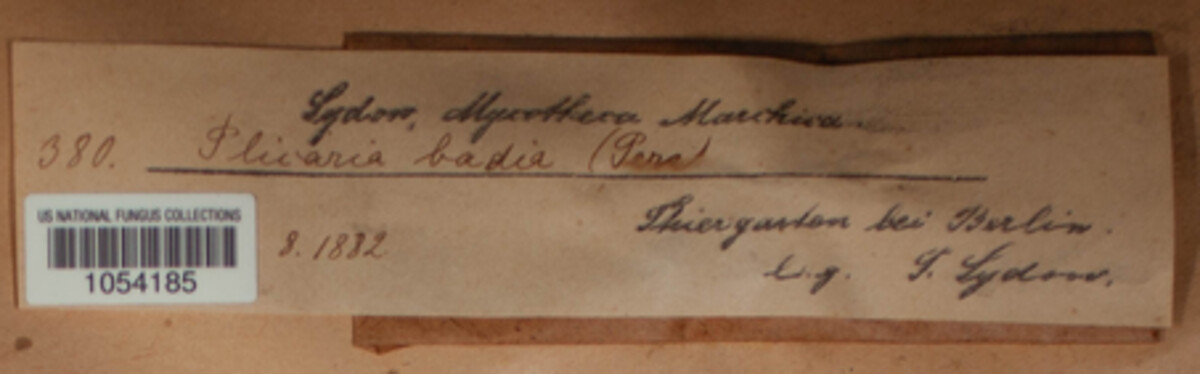 Sydow, Mycotheca Marchica.
380. Plicaria badia (Pers)
US NATIONAL FUNGUS COLLECTIONS
1054185
8. 1882
Thiergarten bei Berlin.
leg. P. Sydow.